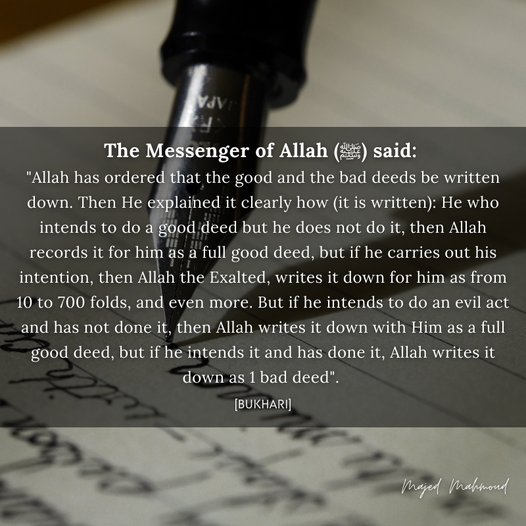 The Messenger of Allah (ﷺ) said:
"Allah has ordered that the good and the bad deeds be written
down. Then He explained it clearly how (it is written): He who
intends to do a good deed but he does not do it, then Allah
records it for him as a full good deed, but if he carries out his
intention, then Allah the Exalted, writes it down for him as from
10 to 700 folds, and even more. But if he intends to do an evil act
and has not done it, then Allah writes it down with Him as a full
good deed, but if he intends it and has done it, Allah writes it
down as 1 bad deed".
[BUKHARI]
Majed Mahmoud